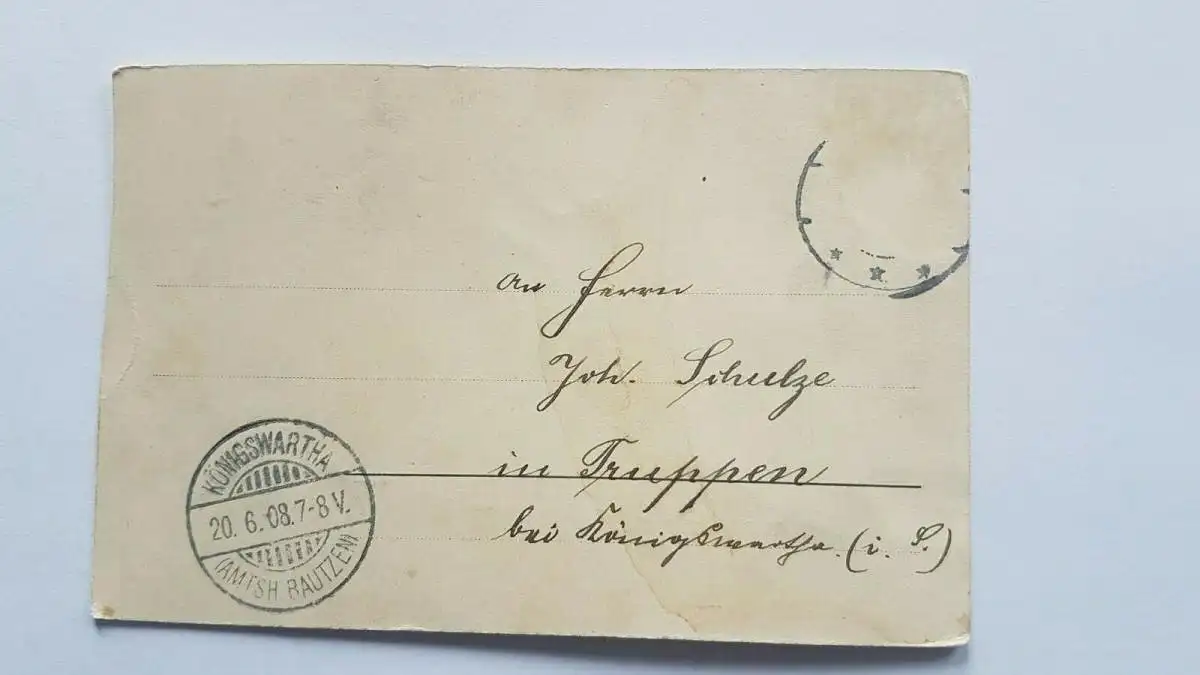 An Herrn
Joh. Schulze
in Truppen
bei Königswartha. (i. S.)
KÖNIGSWARTHA
20. 6. 08. 7-8 V.
(AMTSH BAUTZEN)